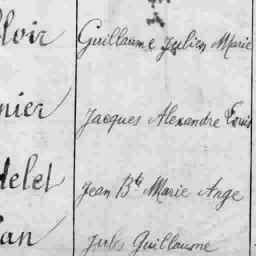 lloir Guillaume Julien Marie
nier Jacques Alexandre Louis
delet Jean Bte Marie Ange
an Jules Guillaume